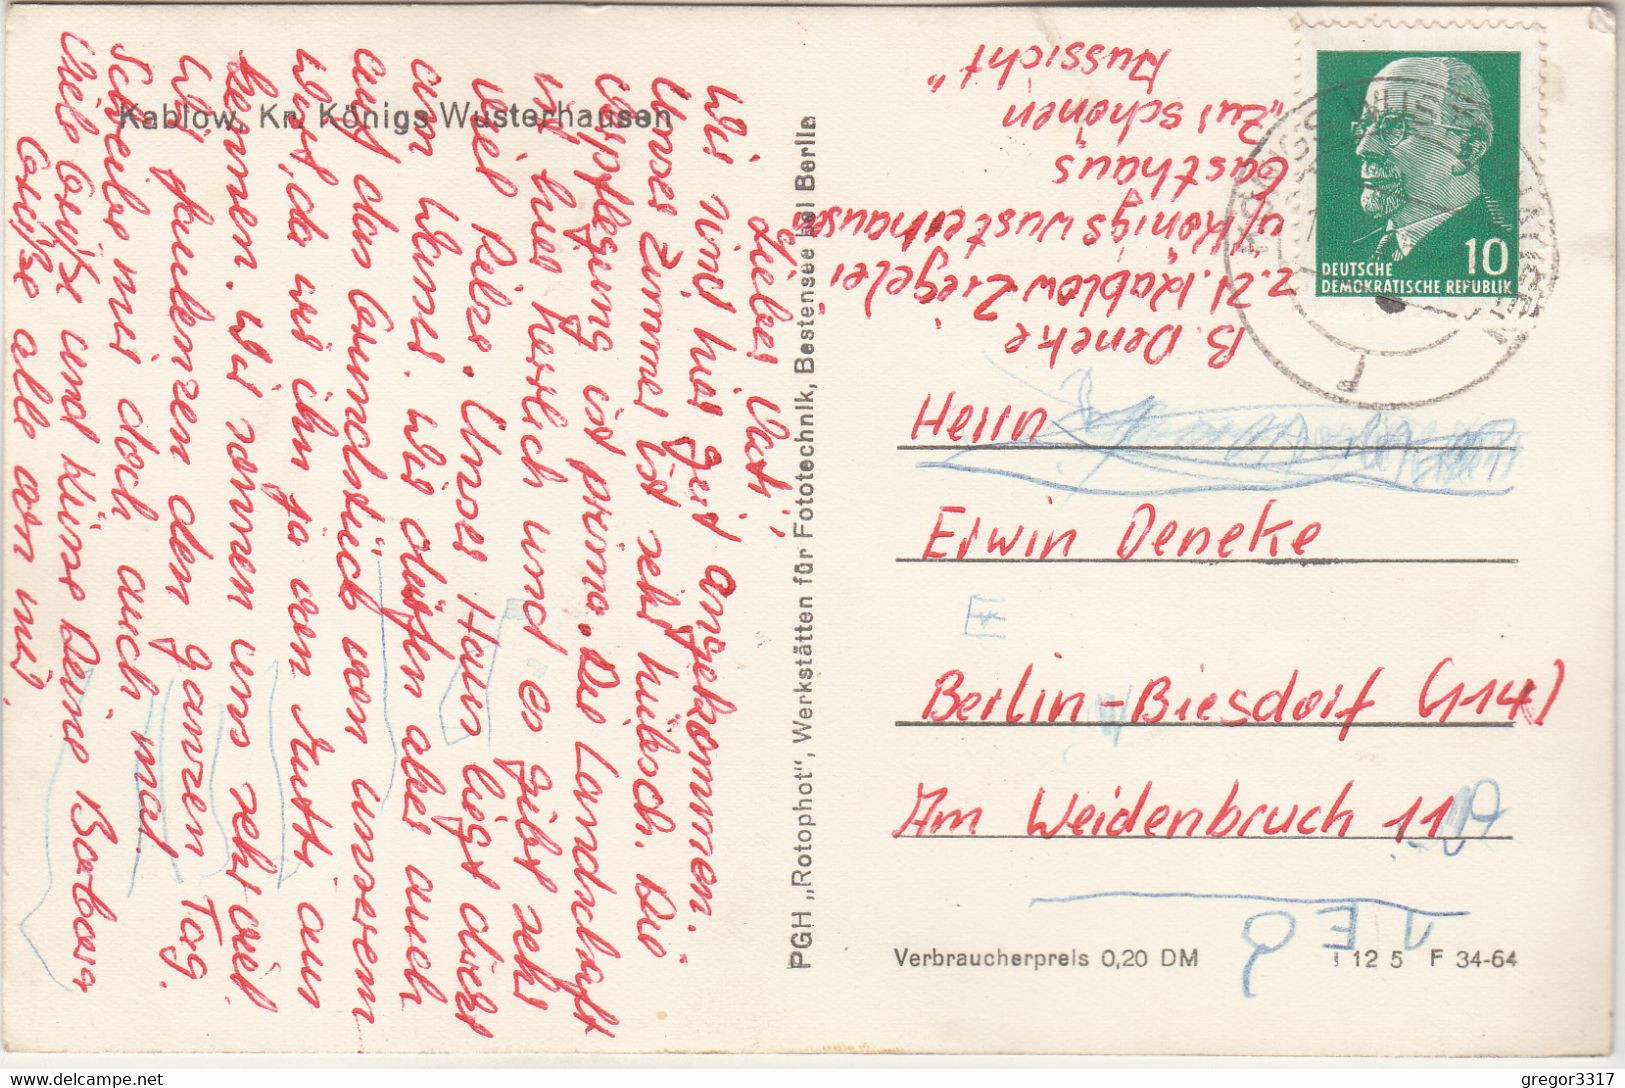 Kablow, Kr. Königs Wusterhausen
Lieber Vati!
Wir sind hier gut angekommen.
Unser Zimmer ist sehr hübsch. Die
Verpflegung ist prima. Die Landschaft
ist hier herrlich und es gibt sehr
viel Pilze. Unser Haus liegt direkt
am Wald. Wir dürfen aber auch
auf das Grundstück von unserem
da wir ihn ja von Mutti aus
kennen. Wir sonnen uns sehr viel.
Wir faulenzen den ganzen Tag.
Schreibe mir doch auch mal.
Viele Grüße und Küsse Deine Barbara
Grüße alle von mir.
PGH „Rotophot“, Werkstätten für Fototechnik, Bestensee bei Berlin
B. Deneke
z.Zt. Kablow Ziegelei
ü/Königswusterhausen
Gasthaus
„Zur schönen
Aussicht“
10
DEUTSCHE
DEMOKRATISCHE REPUBLIK
Herrn
Erwin Deneke
Berlin-Biesdorf (114)
Am Weidenbruch 11
Verbraucherpreis 0,20 DM
I 12 5 F 34-64
gregor3317